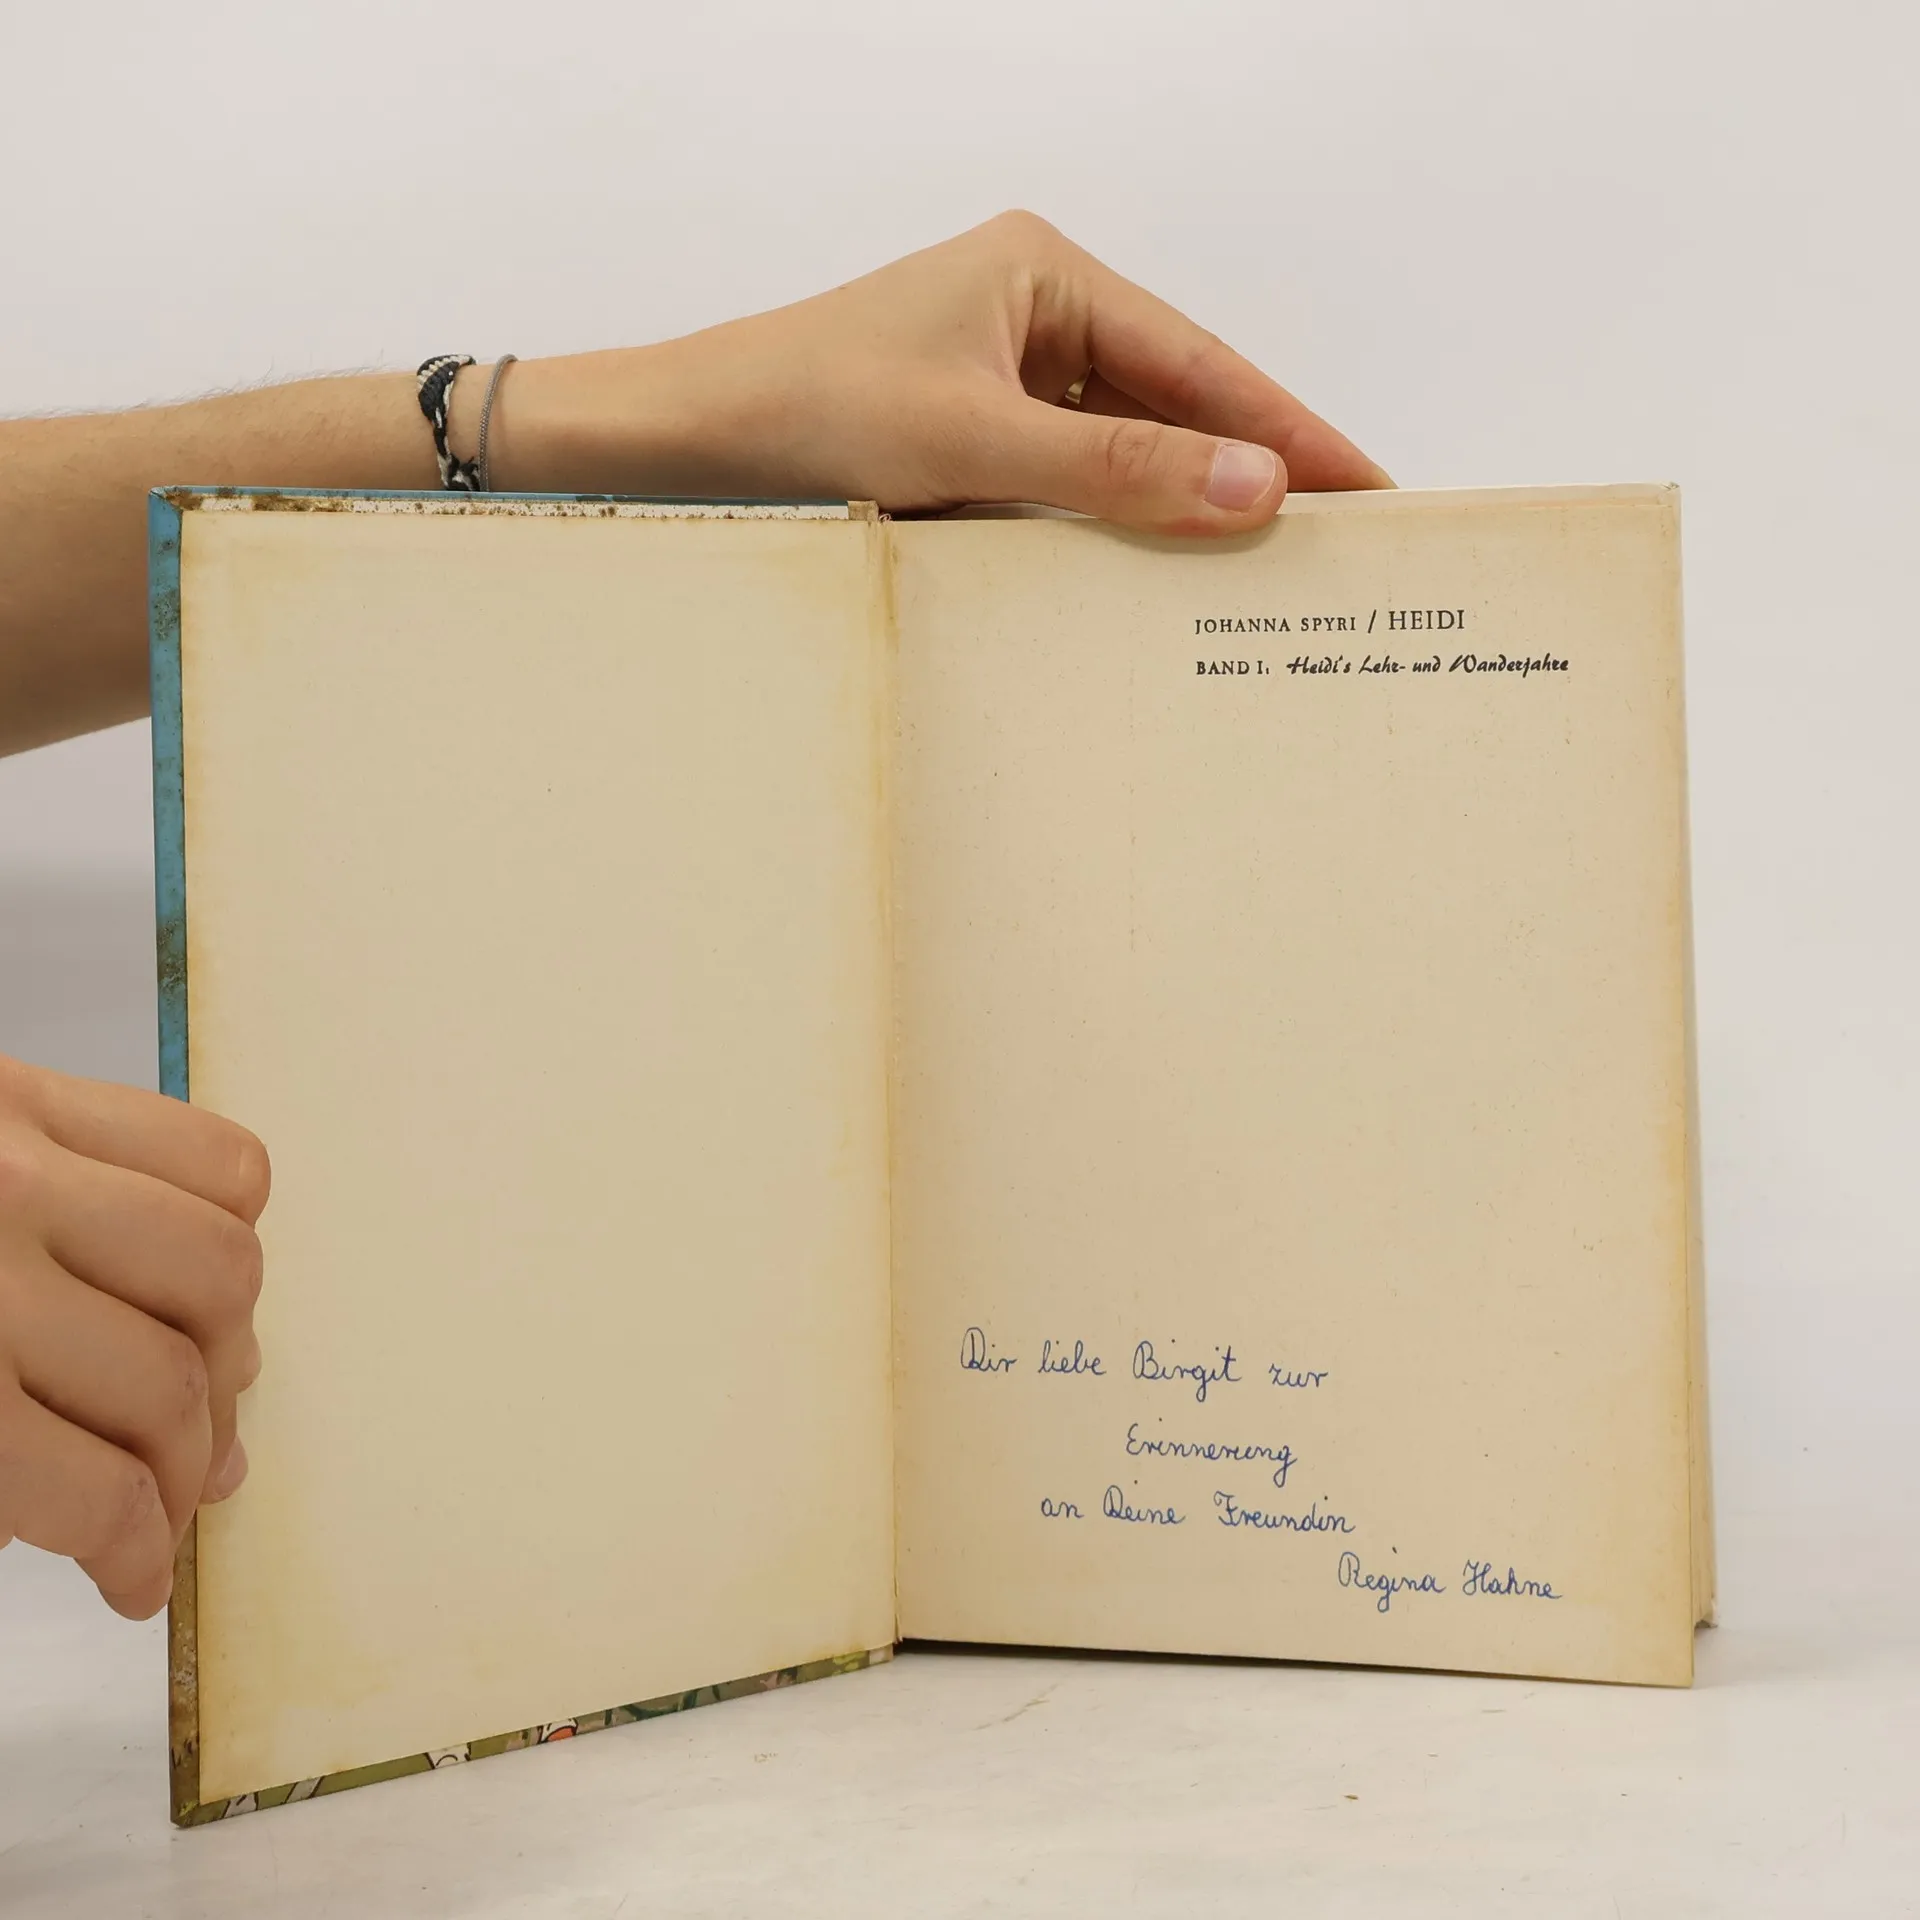 JOHANNA SPYRI / HEIDI
BAND I: Heidi's Lehr- und Wanderjahre
Dir liebe Birgit zur
Erinnerung
an Deine Freundin
Regina Hahne